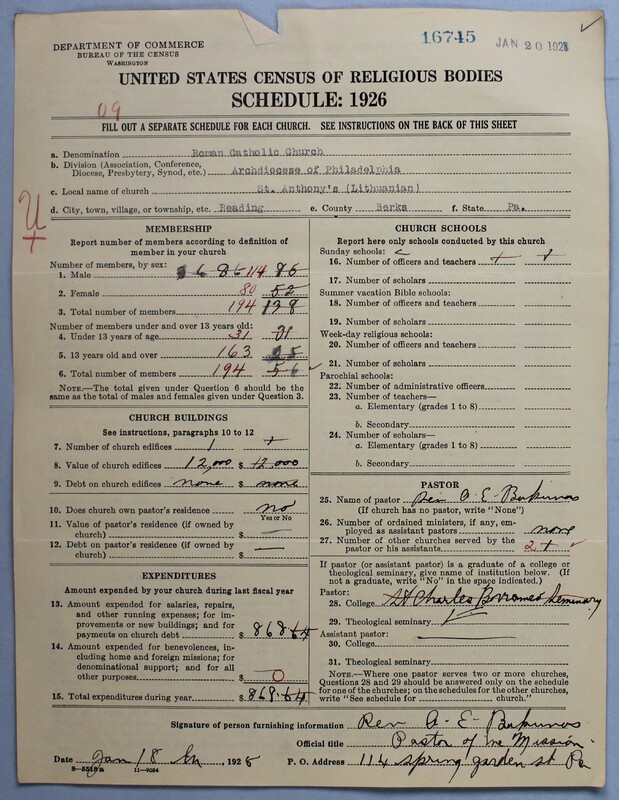 16745
JAN 20 1928
DEPARTMENT OF COMMERCE
BUREAU OF THE CENSUS
WASHINGTON
UNITED STATES CENSUS OF RELIGIOUS BODIES
SCHEDULE: 1926
09
FILL OUT A SEPARATE SCHEDULE FOR EACH CHURCH. SEE INSTRUCTIONS ON THE BACK OF THIS SHEET
a. Denomination Roman Catholic Church
b. Division (Association, Conference,
Diocese, Presbytery, Synod, etc.) Archdiocese of Philadelphia
c. Local name of church St. Anthony's (Lithuanian)
d. City, town, village, or township, etc. Reading e. County Berks f. State Pa.
U
MEMBERSHIP
Report number of members according to definition
of member in your church
Number of members, by sex:
1. Male 114 86
2. Female 80 52
3. Total number of members 194 138
Number of members under and over 13 years old:
4. Under 13 years of age 31 31
5. 13 years old and over 163
6. Total number of members 194 56
NOTE.—The total given under Question 6 should be the
same as the total of males and females given under Question 3.
CHURCH BUILDINGS
See instructions, paragraphs 10 to 12
7. Number of church edifices 1
8. Value of church edifices 12,000 $ 12,000
9. Debt on church edifices none $ none
10. Does church own pastor's residence? no
Yes or No
11. Value of pastor's residence (if owned by
church) $ —
12. Debt on pastor's residence (if owned by
church) $ —
EXPENDITURES
Amount expended by your church during last fiscal year
13. Amount expended for salaries, repairs,
and other running expenses; for im-
provements or new building; and for
payments on church debt $ 868.64
14. Amount expended for benevolences,
including home and foreign missions; for
denominational support; and for all
other purposes $ 0
15. Total expenditures during year $ 868.64
CHURCH SCHOOLS
Report here only schools conducted by this church
Sunday schools:
16. Number of officers and teachers
17. Number of scholars
Summer vacation Bible schools:
18. Number of officers and teachers
19. Number of scholars
Week-day religious schools:
20. Number of officers and teachers
21. Number of scholars
Parochial schools:
22. Number of administrative officers
23. Number of teachers—
a. Elementary (grades 1 to 8)
b. Secondary
24. Number of scholars—
a. Elementary (grades 1 to 8)
b. Secondary
PASTOR
25. Name of pastor Rev A. E. Bakunas
(If church has no pastor, write "None")
26. Number of ordained ministers, if any, em-
ployed as assistant pastors none
27. Number of other churches served by the
pastor or his assistants 2
If pastor (or assistant pastor) is a graduate of a college or
theological seminary, give name of institution below. (If
not a graduate, write "No" in the space indicated.)
Pastor:
28. College St Charles Borromeo Seminary
29. Theological seminary
Assistant pastor:
30. College
31. Theological seminary
NOTE.—Where one pastor serves two or more churches,
Questions 28 and 29 should be answered only on the schedule
for one of the churches; on the schedules for the other churches,
write "See schedule for church."
Signature of person furnishing information Rev A. E. Bakunas
Official title Pastor of the Mission
Date Jan 18 th, 1928 P. O. Address 114 spring garden st Pa
8—5518a 11—9064